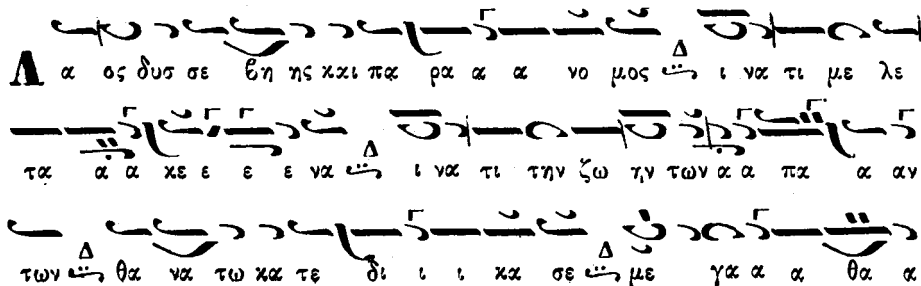 Λ α ος δυσ σε βη ης και πα ρα α α νο μος Δ ι να τι με λε
τα α α κε ε ε ε να Δ ι να τι την ζω ην των α α πα α αν
των Δ θα να τω κα τε δι ι ι κα σε Δ με γα α α θα α